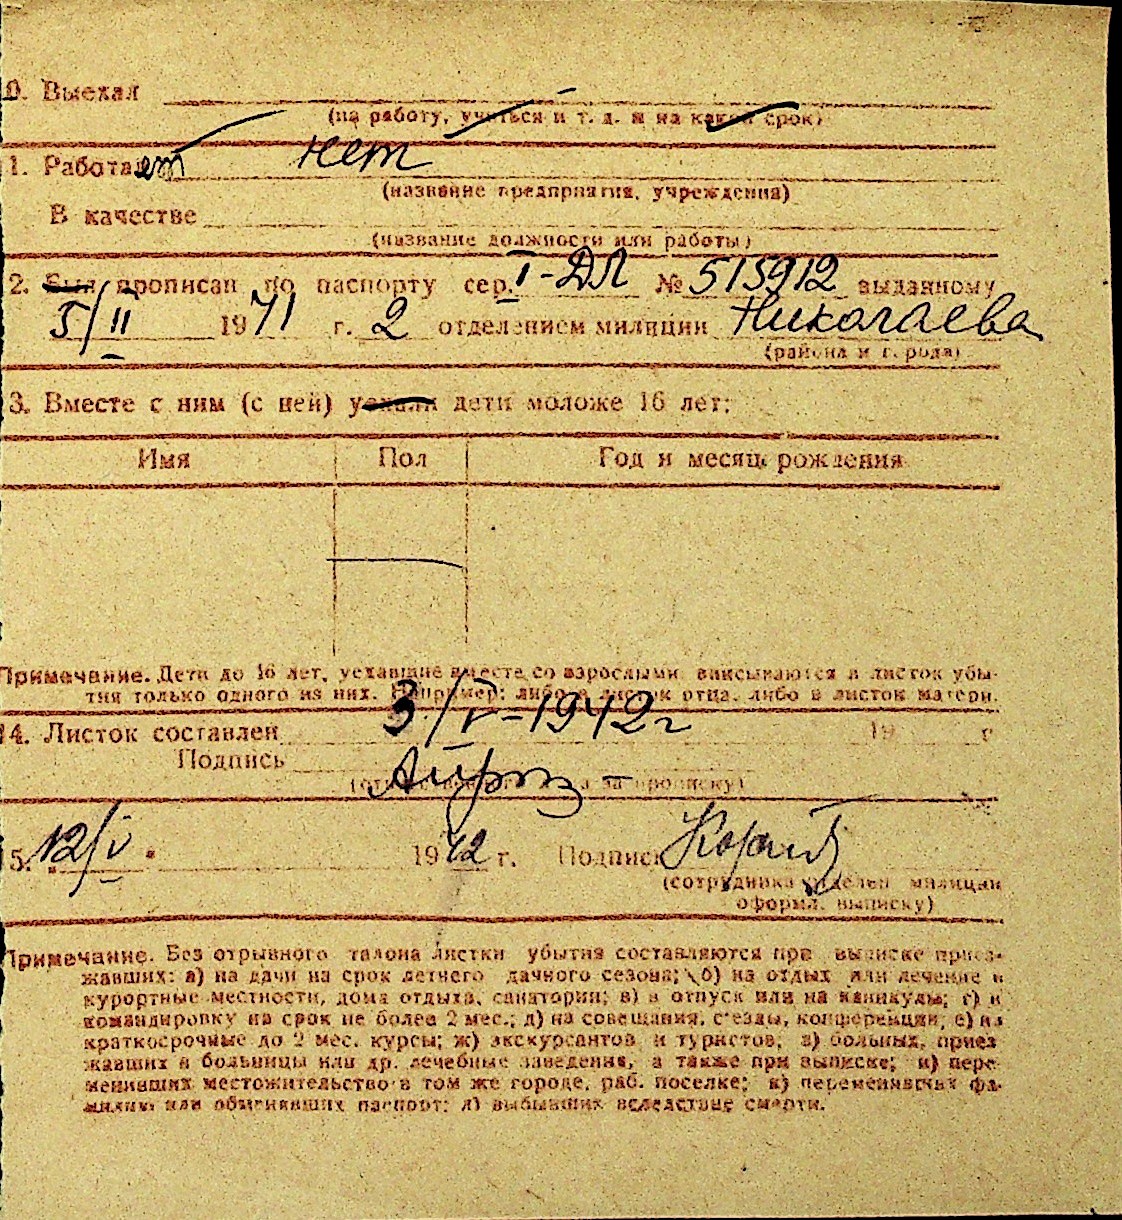 0. Выехал
(на работу, учиться и т. д. и на какой срок)
1. Работает нет
(название предприятия, учреждения)
В качестве
(название должности или работы)
2. Был прописан по паспорту сер. I-ДЛ № 515912 выданному
5/II 1971 г. 2 отделением милиции Николаева
(района и города)
3. Вместе с ним (с ней) уехали дети моложе 16 лет:
Имя Пол Год и месяц рождения
Примечание. Дети до 16 лет, уехавшие вместе со взрослыми вписываются в листок убы-
тия только одного из них. Например: либо в листок отца, либо в листок матери.
14. Листок составлен 3/V-1942г 19 г
Подпись
(от за прописку)
5. 12/V 1942 г. Подпись
(сотрудника отделен милиции
оформл. выписку)
Примечание. Без отрывного талона листки убытия составляются при выписке приез-
жавших: а) на дачи на срок летнего дачного сезона; б) на отдых или лечение в
курортные местности, дома отдыха, санатории; в) в отпуск или на каникулы; г) в
командировку на срок не более 2 мес.; д) на совещания, с'езды, конференции, е) на
краткосрочные до 2 мес. курсы; ж) экскурсантов и туристов, з) больных, приез
жавших в больницы или др. лечебные заведения, а также при выписке; и) пере-
менивших местожительство в том же городе, раб. поселке; к) переменивших фа-
милию или обменявших паспорт; л) выбывших вследствие смерти.